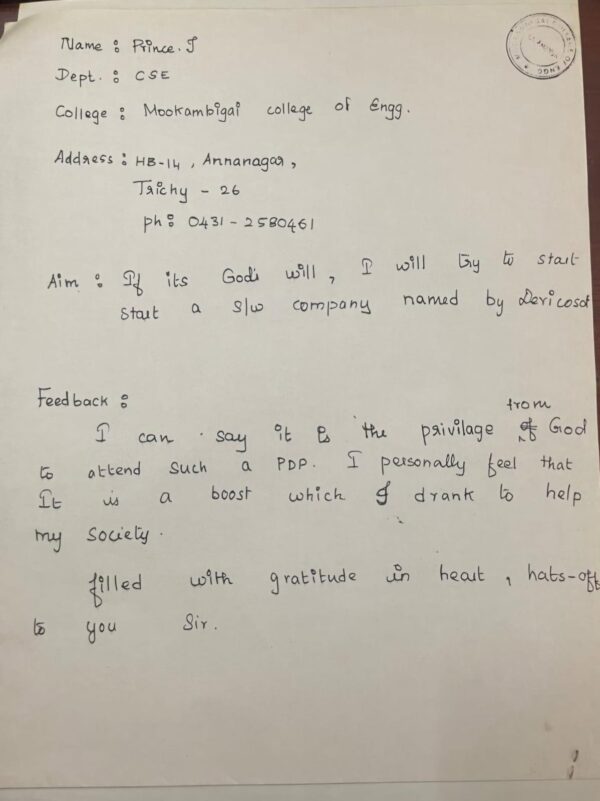 Name : Prince. J
Dept. : CSE
College : Mookambigai college of Engg.
Address : HB-14, Annanagar,
Trichy - 26
ph : 0431 - 2580461
Aim : If its God's will, I will try to start
start a s/w company named by Devicosof
Feedback :
from
I can say it is the privilage of God
to attend such a PDP. I personally feel that
It is a boost which I drank to help
my society.
filled with gratitude in heart, hats-off
to you Sir.